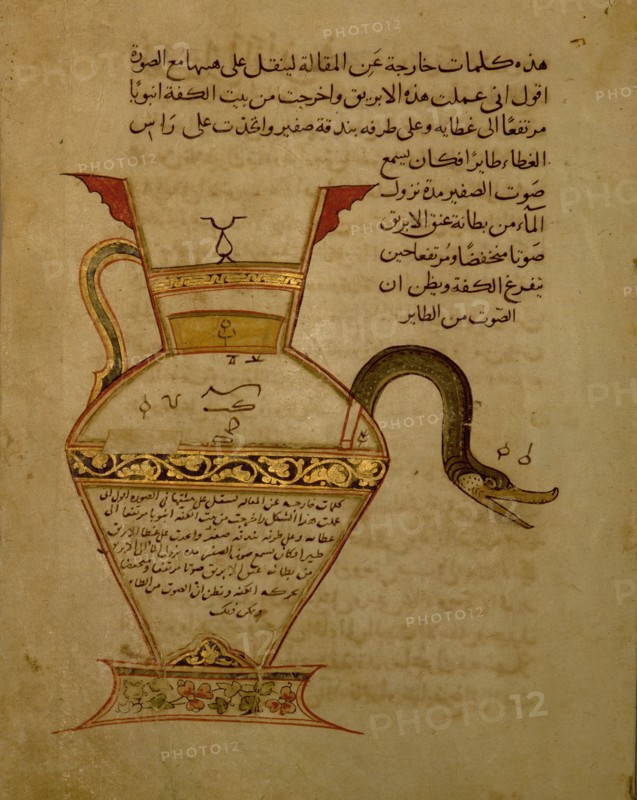 هذه كلمات خارجة عن المقالة لينقل على هيئها مع الصورة
اقول انى عملت هذه الابريق واخرجت من بيت الكفة انبوبا
مرتفعا الى غطايه وعلى طرفه بندقة صفير واتخذت على راس
الغطاء طايرا فكان يسمع
صوت الصفير مدة نزول
المآء من بطانة عنق الابريق
صوتا منخفضا ومرتفعا حين
يتفرغ الكفة ويظن ان
الصوت من الطاير
كلمات خارجه عن المقاله الصوره اقول انى
عملت هذا الشكل واخرجت من بيت الكفه انبوبا مرتفعا الى
غطايه وعلى طرفه بندقه صفير واتخذت على غطا الابريق
طيرا فكان يسمع صوت الصفير مده نزول الما الى الابريق
من بطانه عنق الابريق صوتا مرتفعا ومنخفضا
الكفه ويظن ان الصوت من الطاير
PHOTO12